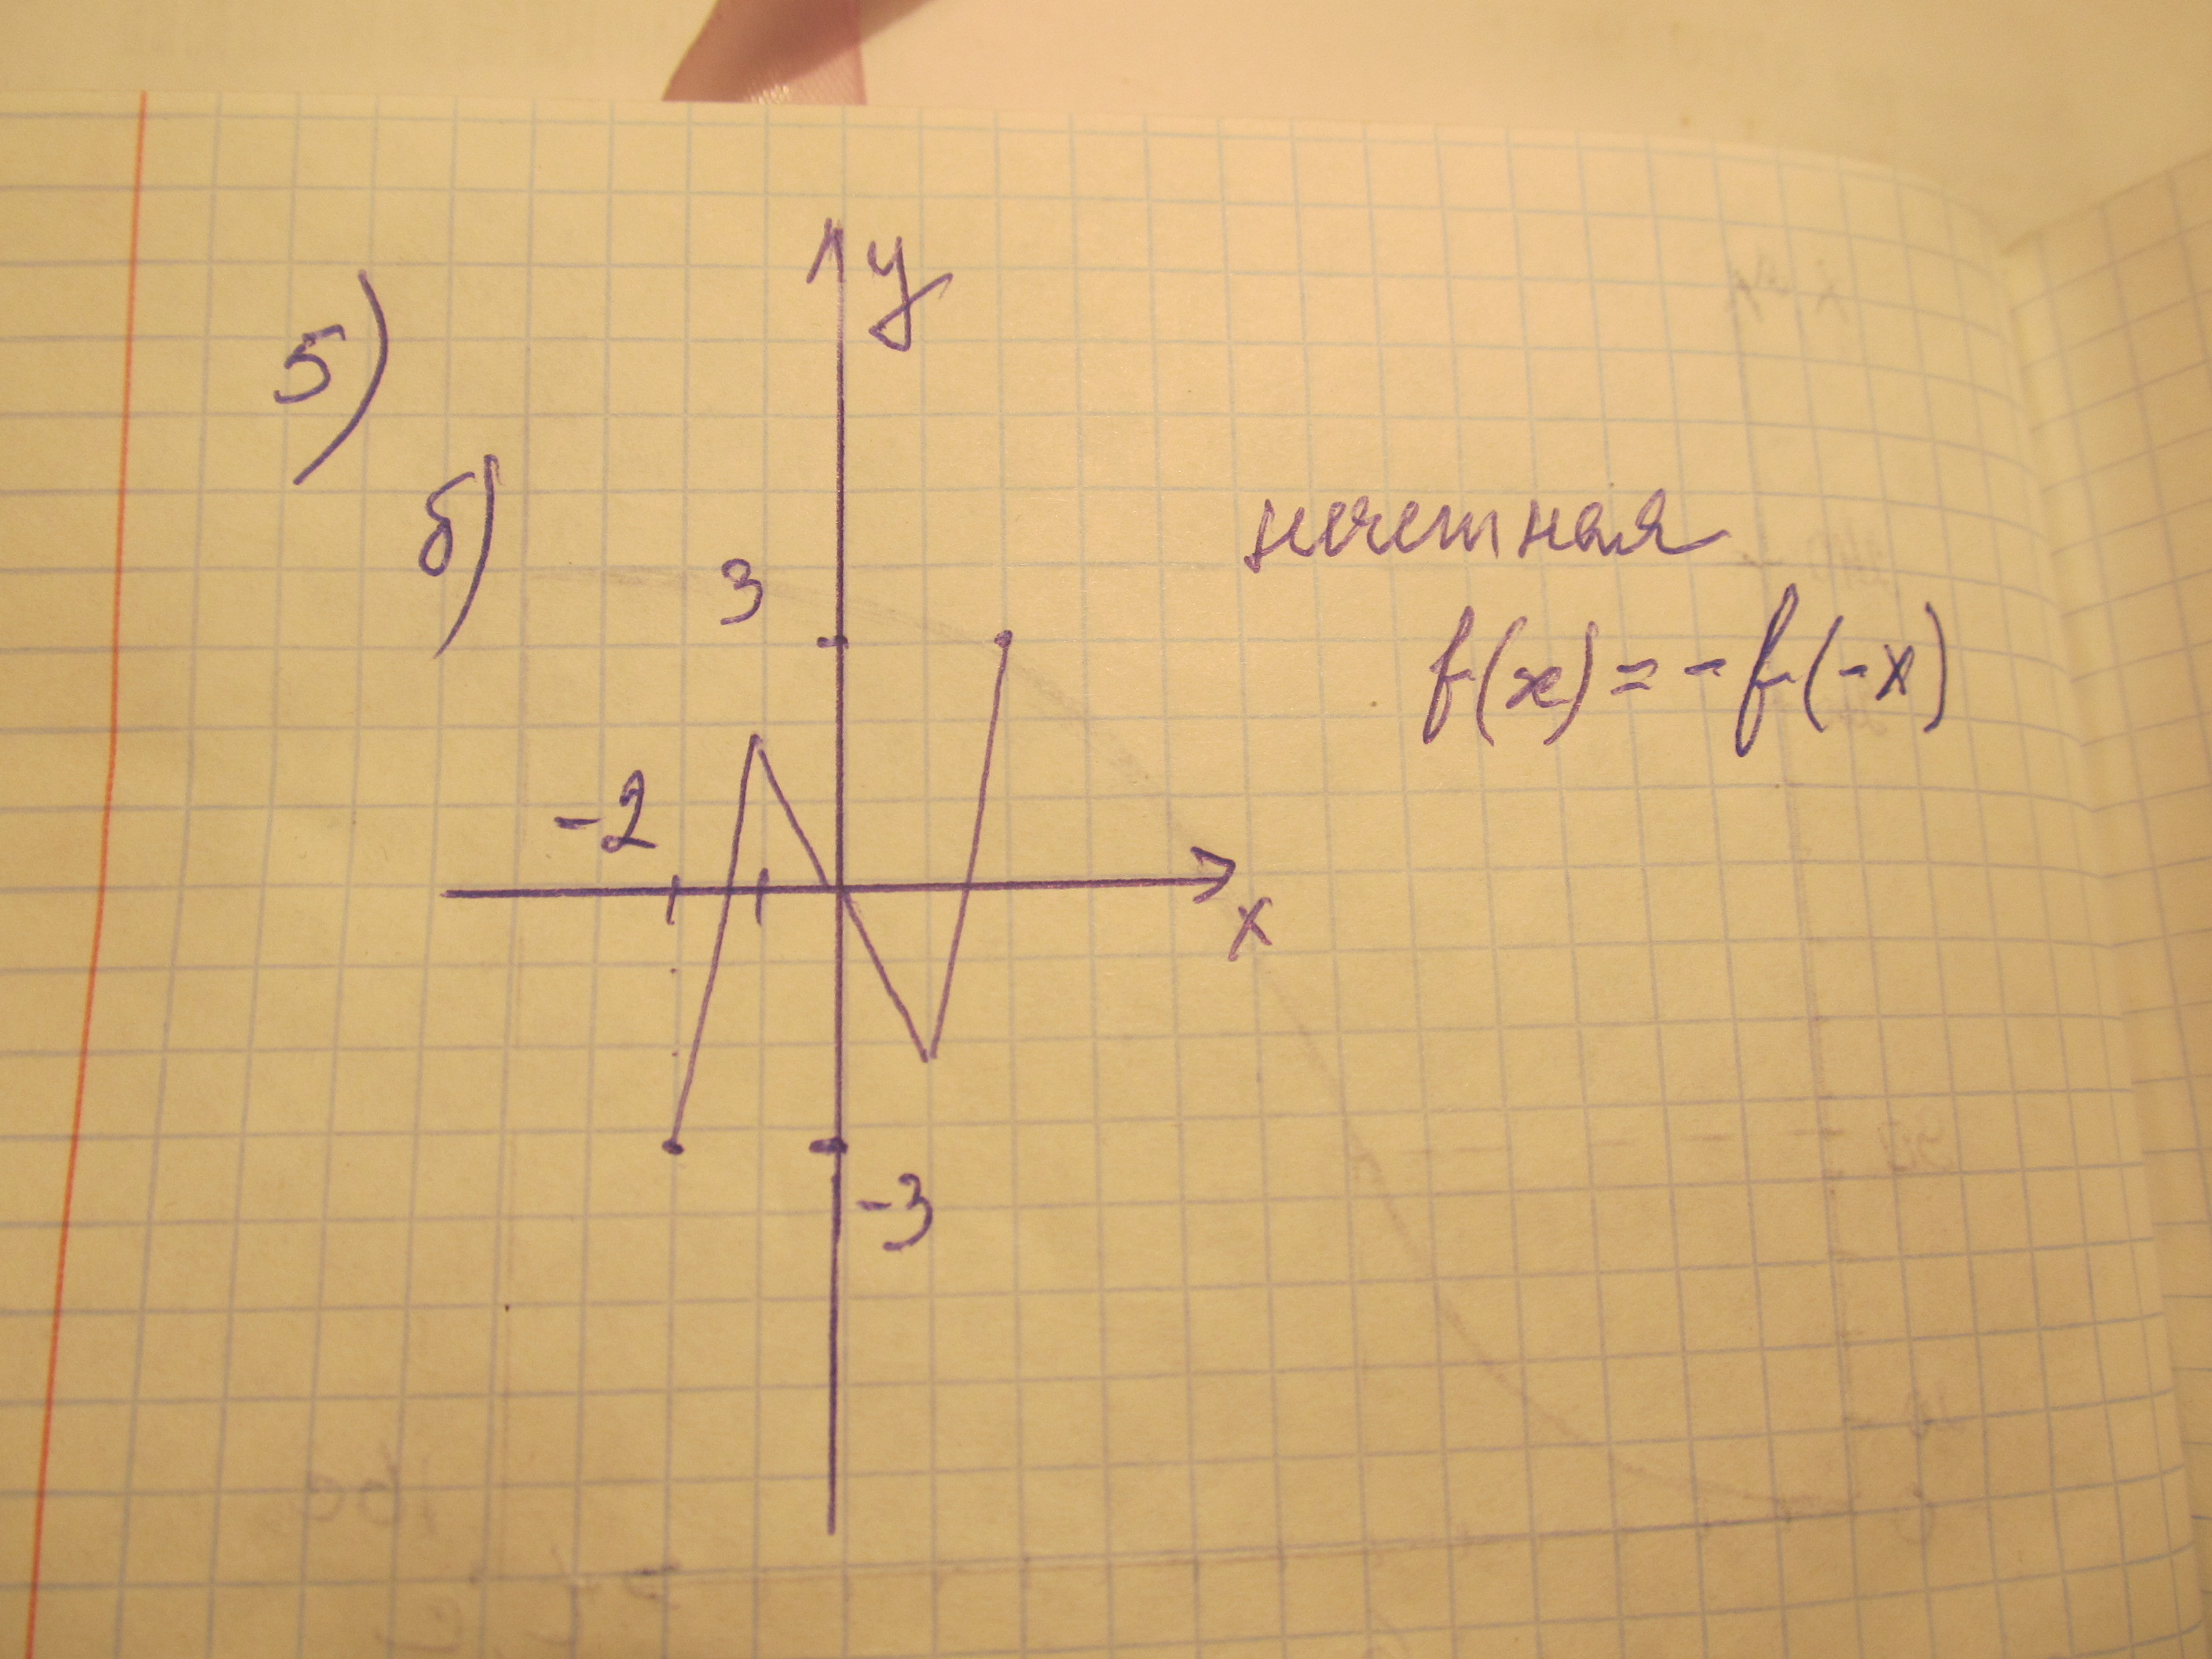 5)
у
б)
нечетная
3
f(x) = -f(-x)
-2
x
-3